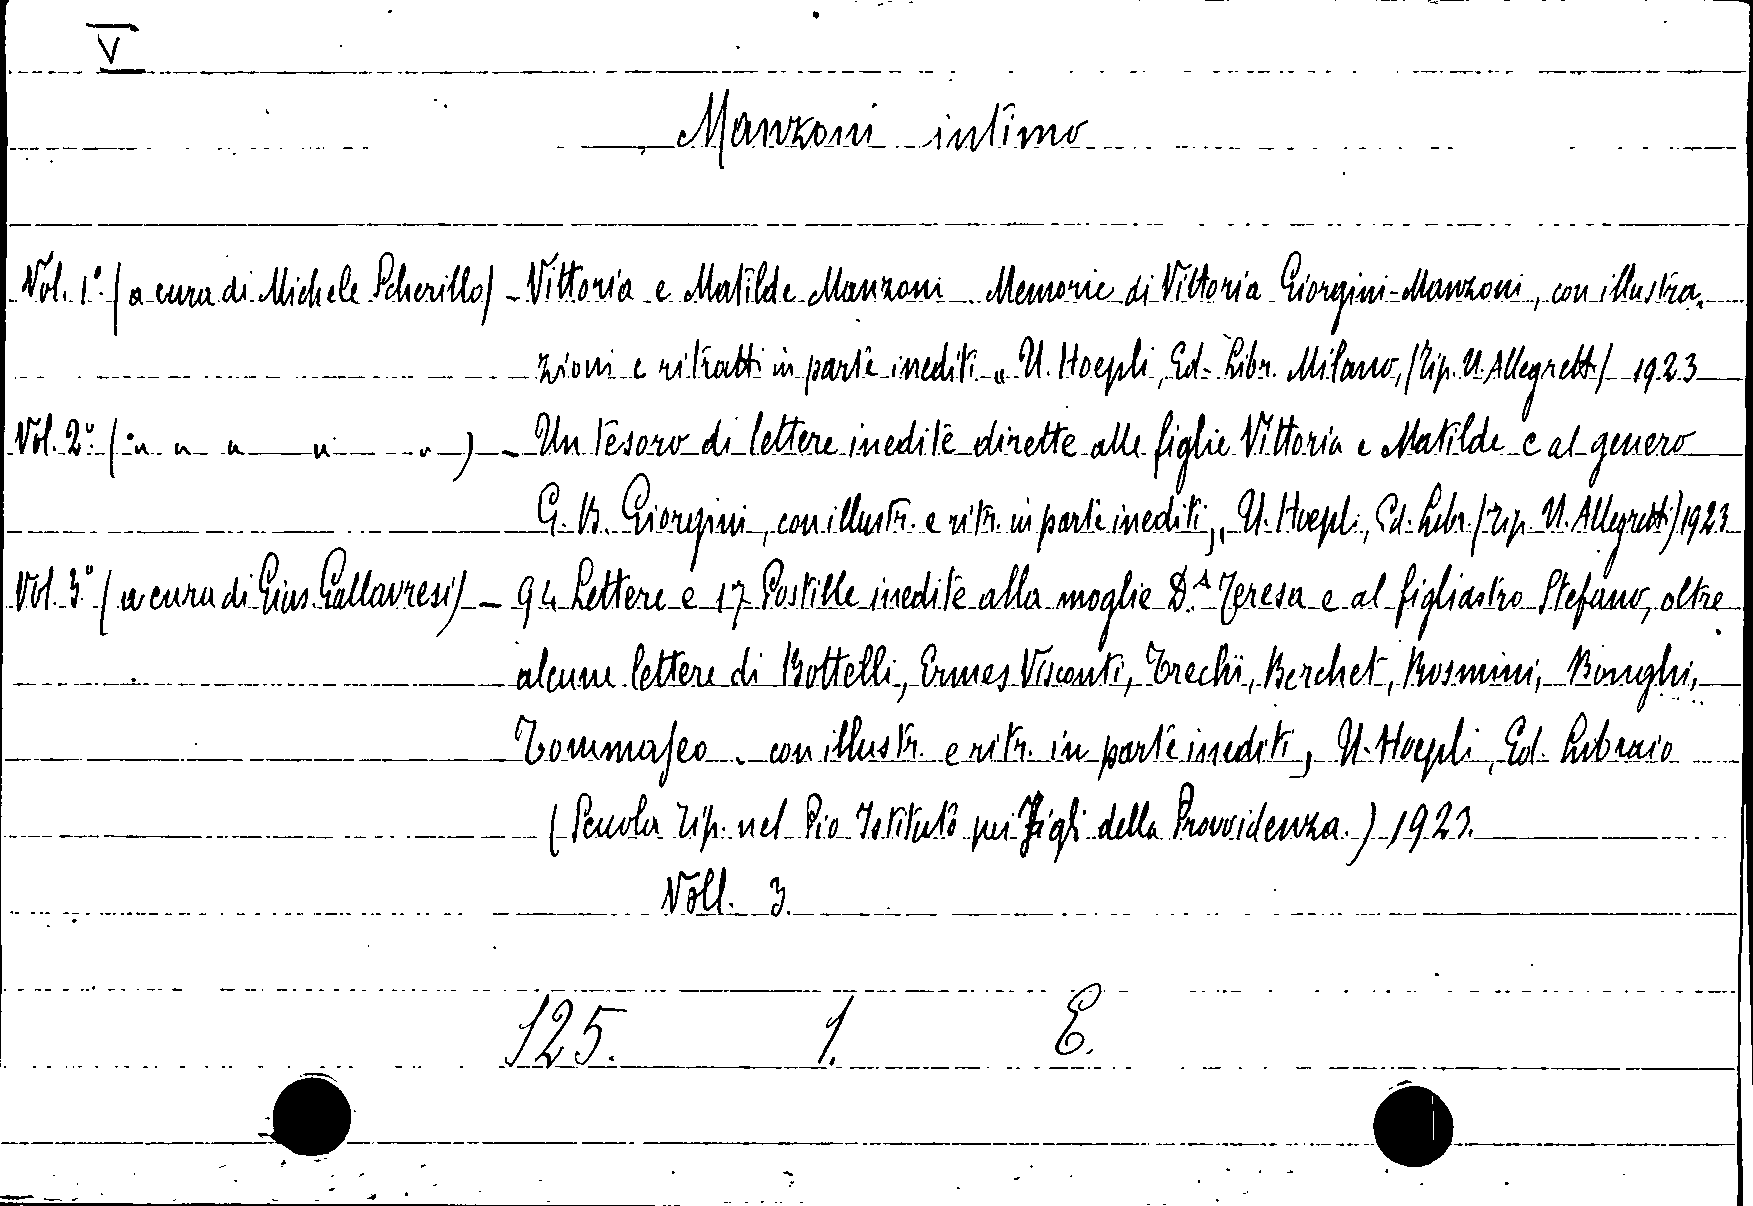 V
Manzoni intimo
Vol. 1º (a cura di Michele Scherillo) - Vittoria e Matilde Manzoni Memorie di Vittoria Giorgini-Manzoni, con illustra-
zioni e ritratti in parte inediti " U. Hoepli, Ed- Libr. Milano, (Tip. U. Allegretti) 1923
Vol. 2º (" " " " ") - Un tesoro di lettere inedite dirette alle figlie Vittoria e Matilde e al genero
G. B. Giorgini, con illustr. e ritr. in parte inediti, U. Hoepli, Ed. Libr. (Tip. U. Allegretti) 1923
Vol. 3º (a cura di Gius. Gallavresi) - 94 Lettere e 17 Postille inedite alla moglie D.ª Teresa e al figliastro Stefano, oltre
alcune lettere di Bottelli, Ermes Visconti, Trechi, Berchet, Rosmini, Bonghi,
Tommaseo - con illustr. e ritr. in parte inediti, U. Hoepli, Ed. Libraio
(Scuola Tip. nel Pio Istituto pei Figli della Provvidenza.) 1923.
Voll. 3.
125. 1. E.